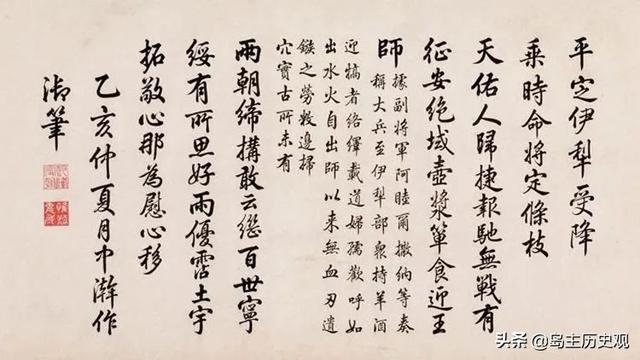 平定伊犁受降
乘時命將定條枝
天佑人歸捷報馳無戰有
征安絶域壺漿簞食迎王
師
據副將軍阿睦爾撒納等奏
稱大兵至伊犁部衆持羊酒
迎犒者絡繹載道婦孺歡呼如
出水火自出師以來無血刃遺
鏃之勞敉邊掃
穴實古所未有
兩朝締搆敢云繼百世寧
綏有所思好雨優霑土宇
拓敬心那為慰心移
乙亥仲夏月中澣作
御筆
头条 @岛主历史观